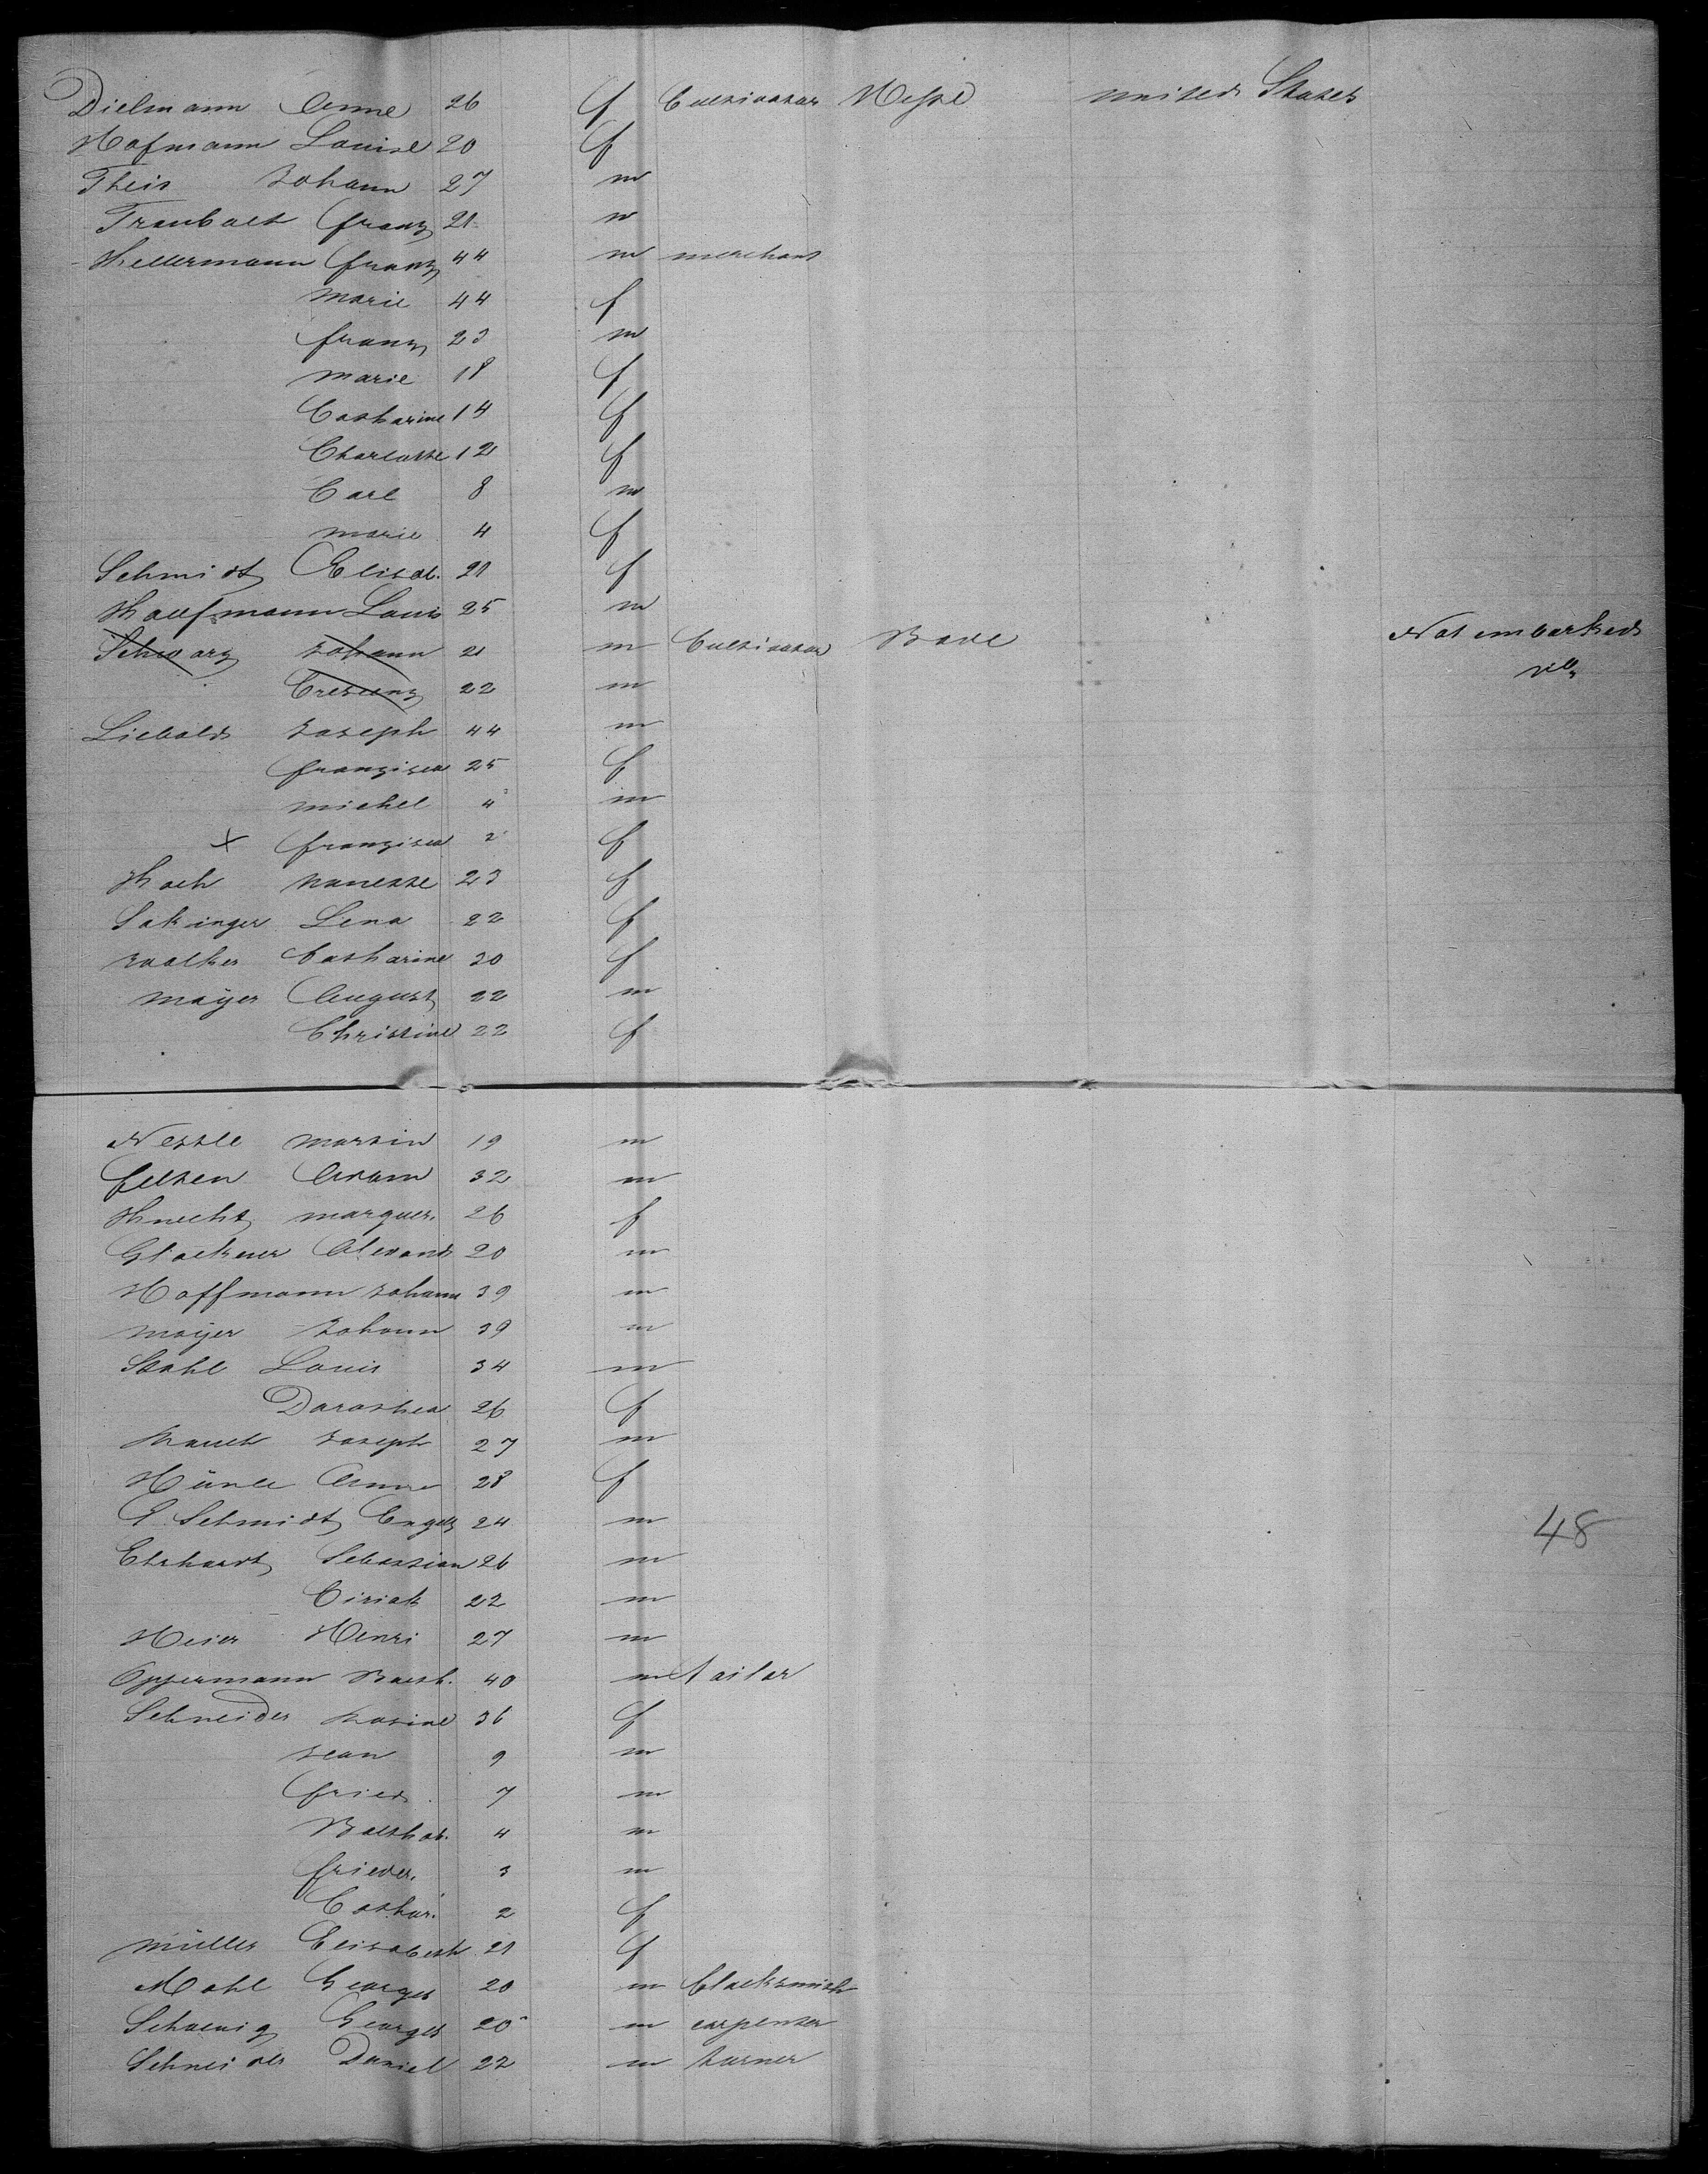 Dielmann Anne 26 f Cultivator Hesse united States
Hofmann Louise 20 f
Theis Johann 27 m
Franz 21 m
Kellermann Franz 44 m merchant
Marie 44 f
Franz 23 m
Marie 18 f
Catharine 14 f
Charlotte 12 f
Carl 8 m
Marie 4 f
Schmidt Elisab. 21 f
Kaufmann Louis 25 m
Schwarz Johann 21 m Cultivator Bade Not embarked
Crescenz 22 m
Liebold Joseph 44 m
Franzisca 25 f
Michel 4 m
x Franzisca 2 f
Koch Nanette 23 f
Sakinger Lena 22 f
Catharine 30 f
Mayer August 22 m
Christine 22 f
Nestle Martin 19 m
Felten Adam 32 m
Knecht Marguer. 26 f
Glockner Alexand 20 m
Hoffmann Johann 39 m
Mayer Johann 39 m
Stahl Louis 34 m
Dorothea 26 f
Joseph 27 m
Anna 28 f
G Schmidt Engelb 24 m
Ehrhardt Sebastian 26 m
Ciriak 22 m
Meier Henri 27 m
Oppermann Balth. 40 m tailor
Schneider Rosine 36 f
Jean 9 m
Fried. 7 m
Balthas. 4 m
Frieder. 3 m
Cathar. 2 f
Müller Elisabeth 21 f
Mohl Georges 20 m blacksmith
Georges 20 m carpenter
Schneider Daniel 22 m turner
48